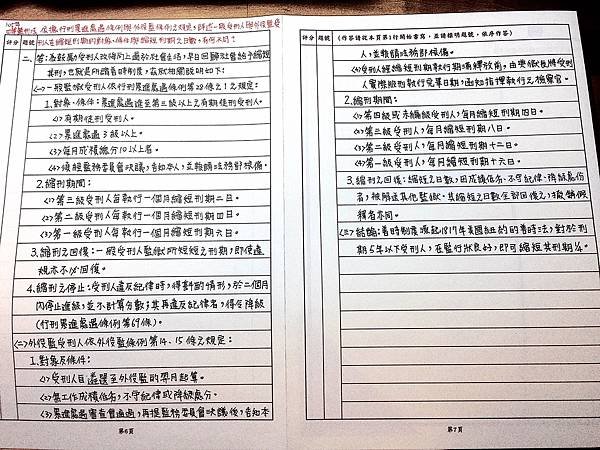 依據行刑累進處遇條例與外役監條例之規定，詳述一般受刑人與外役監受
刑人在縮短刑期的對象、條件與縮短刑期之日數，有何不同？
評分 題號
二、答：為鼓勵受刑人改悔向上適於社會生活，早日回歸社會給予縮短
其刑，也就是所謂善時制度，茲就相關說明如下：
(一)一般監獄受刑人依行刑累進處遇條例第28條之1之規定：
1.對象、條件：累進處遇進至第三級以上之有期徒刑受刑人。
(1)有期徒刑受刑人。
(2)累進處遇3級以上。
(3)每月成績總分10以上者。
(4)須經監務委員會決議，告知本人，並報請法務部核備。
2.縮刑期間：
(1)第三級受刑人每執行一個月縮短刑期二日。
(2)第二級受刑人每執行一個月縮短刑期四日。
(3)第一級受刑人每執行一個月縮短刑期六日。
3.縮刑之回復：一般受刑人監獄所短縮之刑期，即使違
規亦不必回復。
4.縮刑之停止：受刑人違反紀律時，得斟酌情形，於二個月
內停止進級，並不計算分數；其再違反紀律者，得令降級
(行刑累進處遇條例第69條)。
(二)外役監受刑人依外役監條例第14、15條之規定：
1.對象及條件：
(1)受刑人自遴選至外役監的翌月起算。
(2)無工作成績低劣，不守紀律或降級處分。
(3)累進處遇審查會通過，再提監務委員會決議後，告知本
第6頁
評分 題號 (作答請從本頁第1行開始書寫，並請標明題號，依序作答)
人，並報請法務部核備。
(4)受刑人經縮短刑期執行期滿釋放前，由典獄長將受刑
人實際服刑執行完畢日期，函知指揮執行之檢察官。
2.縮刑期間：
(1)第四級或未編級受刑人，每月縮短刑期四日。
(2)第三級受刑人，每月縮短刑期八日。
(3)第二級受刑人，每月縮短刑期十二日。
(4)第一級受刑人，每月縮短刑期十六日。
3.縮刑之回復：縮短之日數，因成績低劣、不守紀律、降級處份
者，被解送其他監獄，其縮短之日數全部回復之，撤銷假
釋者亦同。
(三)結論：善時制度喚起1817年美國紐約的善時法，對於刑
期5年以下受刑人，在監行狀良好，即可縮短其刑期1/4。
第7頁